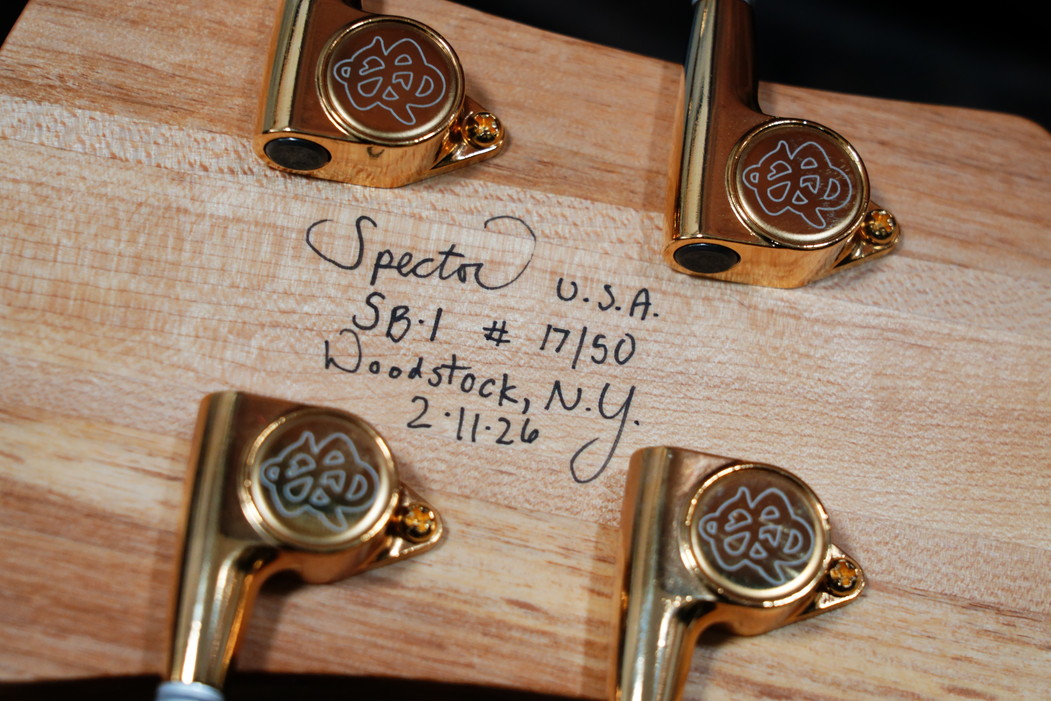 Spector U.S.A.
SB·1 # 17/50
Woodstock, N.Y.
2·11·26